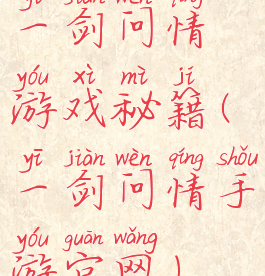 yī jiàn wèn qíng
一剑问情
yóu xì mì jí
游戏秘籍(
yī jiàn wèn qíng shǒu
一剑问情手
yóu guān wǎng
游官网)